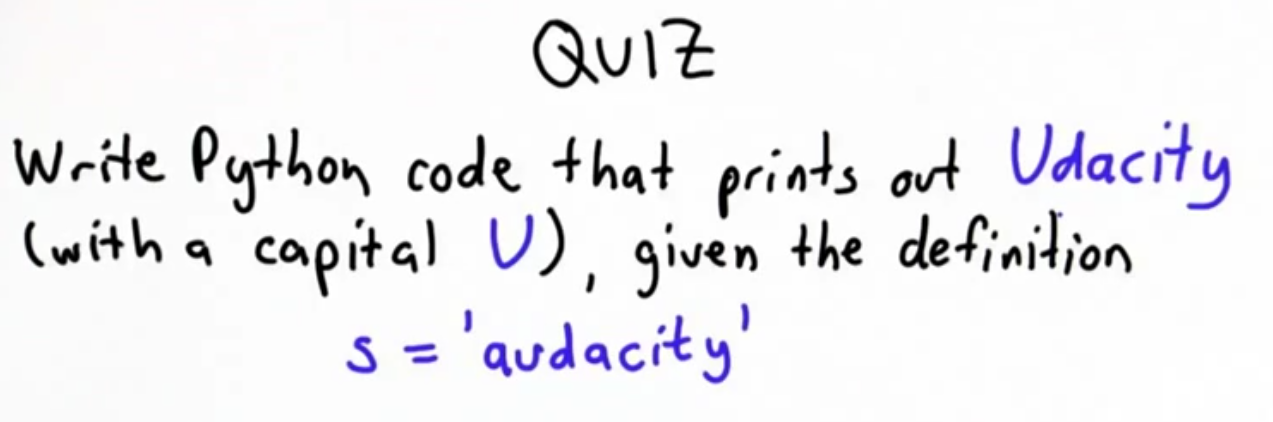 QUIZ
Write Python code that prints out Udacity
(with a capital U), given the definition
s = 'audacity'